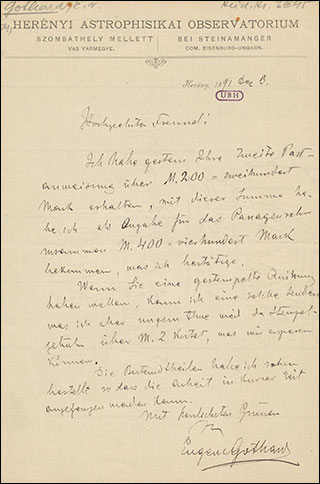 Gothard, E. v.
Heid. Hs. 2645
HERÉNYI ASTROPHISIKAI OBSERVATORIUM
SZOMBATHELY MELLETT
BEI STEINAMANGER
VAS VÁRMEGYE.
COM. EISENBURG-UNGARN.
Herény, 1891 Dec 3.
UBH
Hochgeehrter Freund!
Ich habe gestern Ihre zweite Post-
anweisung über M. 200 = zweihundert
Mark erhalten, mit dieser Summe ha-
be ich als Angabe für das Passagerohr
zusammen M. 400 = vierhundert Mark
bekommen, was ich bestätige.
Wenn Sie eine gestempelte Quittung
haben wollen, kann ich eine solche senden
was ich aber ungern thue weil die Stempel-
gebühr über M. 2 kostet, was wir ersparen
können.
Die Bestandtheile habe ich schon
bestellt so dass die Arbeit in kurzer Zeit
angefangen werden kann.
Mit herzlichsten Grüssen
Eugen v Gothard